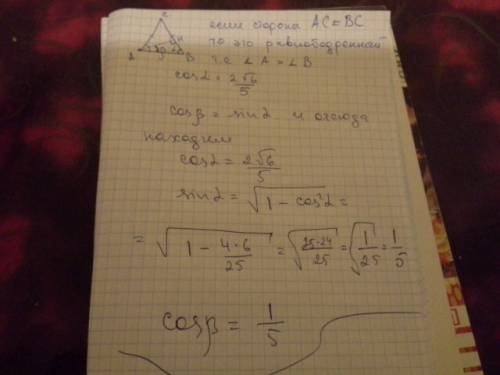 C
H
A
B
если сторона AC = BC
то это равнобедренный
т.е ∠A = ∠B
cosα = 2√6/5
cosβ = sinα и отсюда
находим
cosα = 2√6/5
sinα = √(1 - cos²α) =
= √(1 - 4·6/25) = √((25-24)/25) = √(1/25) = 1/5
cosβ = 1/5